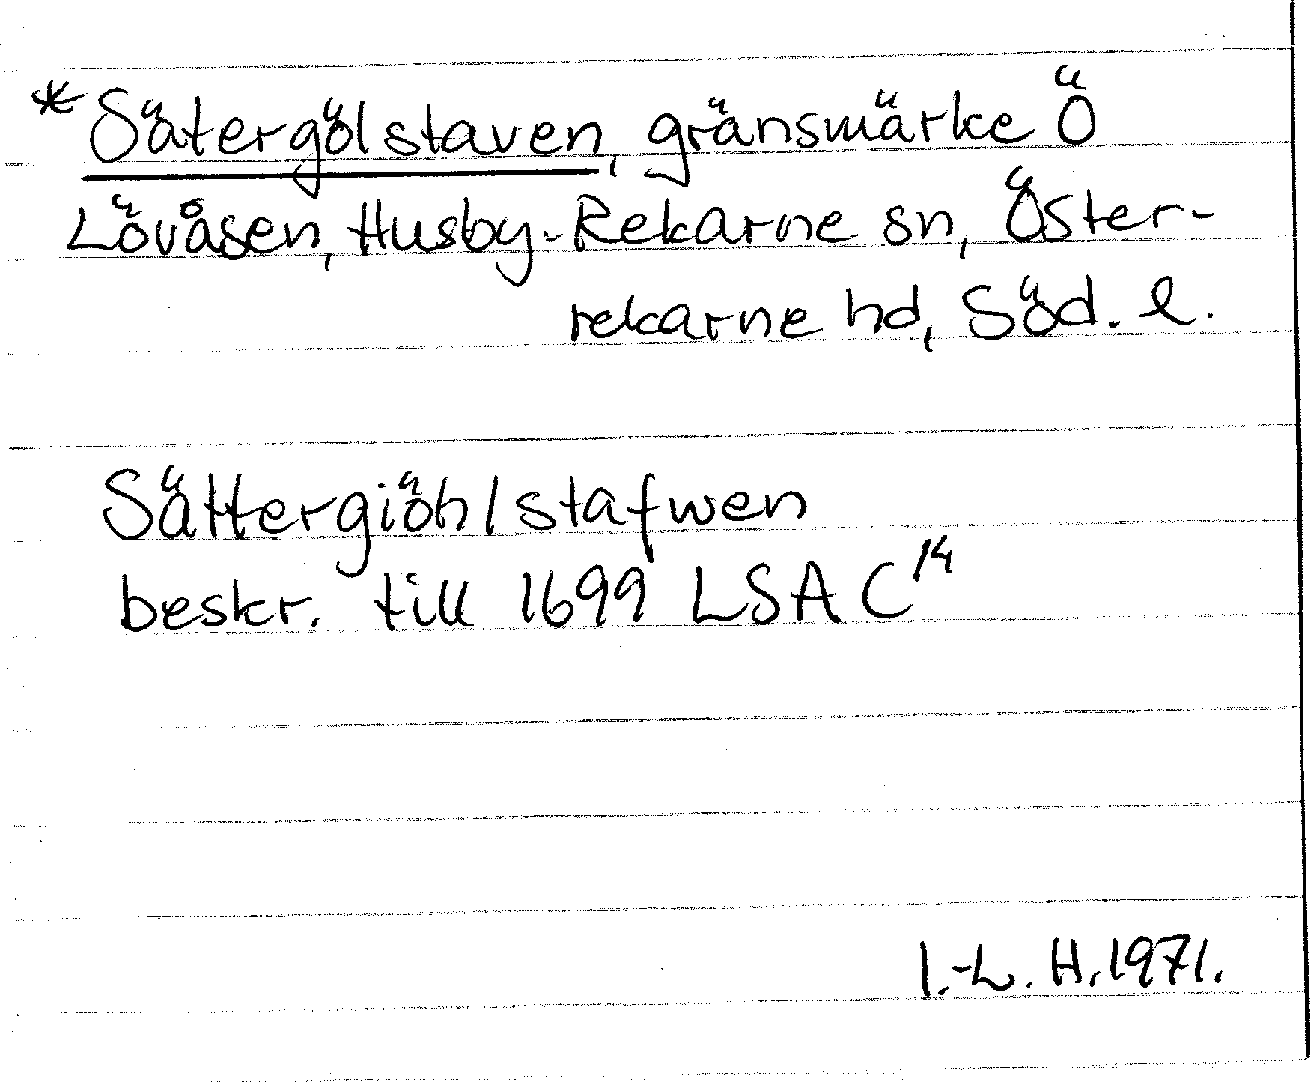 *Sätergölstaven, gränsmärke Ö
Lövåsen, Husby-Rekarne sn, Öster-
rekarne hd, Söd. l.
Sättergiöhlstafwen
beskr. till 1699 LSA C14
I.-L. H. 1971.